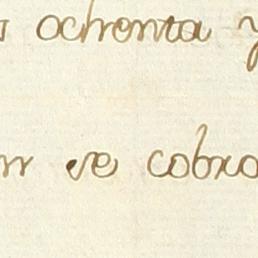 ochenta y
se cobro